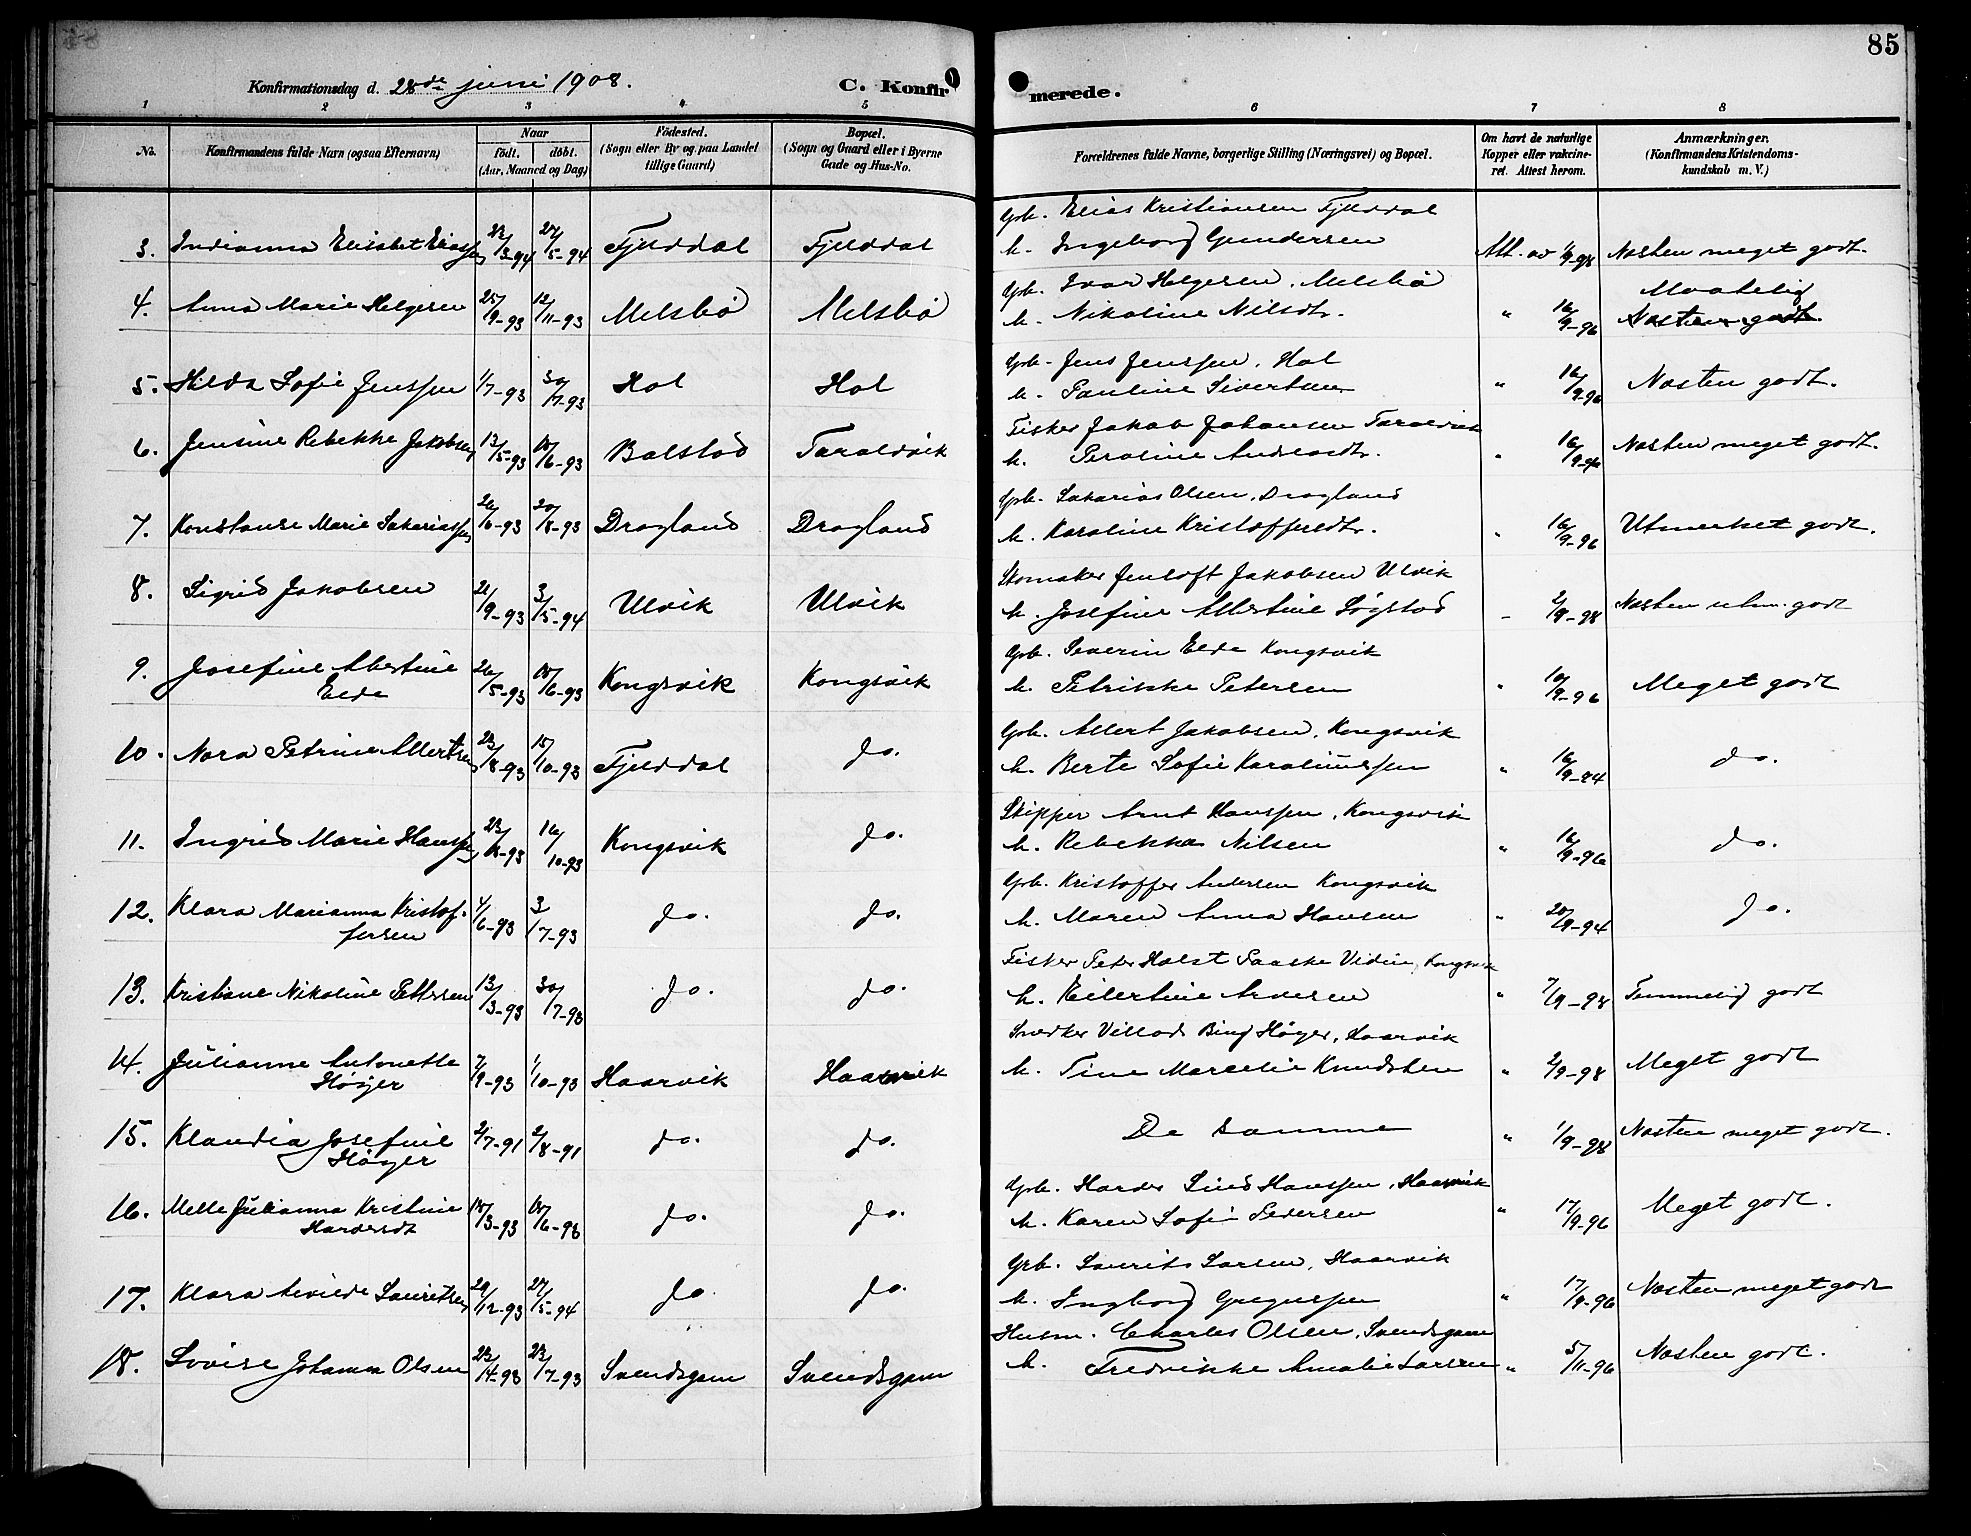 85
Konfirmationsdag d. 28de juni 1908.
C. Konfirmerede.
1 2 3 4 5 6 7 8
No.
Konfirmandens fulde Navn (ogsaa Efternavn)
Naar
født. døbt.
(Aar, Maaned og Dag)
Fødested.
(Sogn eller By og paa Landet
tillige Gaard)
Bopæl.
(Sogn og Gaard eller i Byerne
Gade og Hus-No.
Forældrenes fulde Navne, borgerlige Stilling (Næringsvei) og Bopæl.
Om havt de naturlige
Kopper eller vakcine-
ret. Attest herom.
Anmærkninger.
(Konfirmandens Kristendoms-
kundskab m. V.)
Gbr. Elias Kristiansen Fjelddal
3. Indianna Elisabet Eliassen 27/5-94 Fjelddal Fjelddal h. Ingeborg Gundersen Att. av 1/9-98 Næsten meget godt.
Gbr. Ivar Helgesen, Melsbø Maatelig
4. Anna Marie Helgesen 25/9-93 12/11-93 Melsbø Melsbø h. Nikoline Nilsdtr. " 16/9-96 Næsten godt.
Gbr. Jens Jenssen, Hol
5. Hilda Sofie Jenssen 1/7-93 30/7-93 Hol Hol h. Pauline Sivertsen " 16/9-96 Næsten godt.
Fisker Jakob Johansen Taraldvik
6. Jensine Rebekke Jakobsen 13/5-93 18/6-93 Balstad Taraldvik h. Peroline Andreasdtr. " Næsten meget godt.
Gbr. Sakarias Olsen, Dragland
7. Konstanse Marie Sakariassen 26/6-93 20/8-93 Dragland Dragland h. Karoline Kristoffersdtr. " 16/9-96 Utmerket godt.
Skomaker Jentoft Jakobsen Ulvik
8. Sigrid Jakobsen 21/9-93 3/5-94 Ulvik Ulvik h. Josefine Albertine Søgstad 2/9-98 Næsten utm. godt
Gbr. Severin Elde Kongsvik
9. Josefine Albertine 26/5-93 18/6-93 Kongsvik Kongsvik h. Petrikke Petersen " 16/9-96 Meget godt
Elde
Gbr. Albert Jakobsen, Kongsvik
10. Nora Petrine Albertsen 23/8-93 15/10-93 Fjelddal do. h. Berte Sofie Karoliussen " 16/9-94 do.
Skipper Arnt Hanssen, Kongsvik
11. Ingrid Marie Hanssen 16/10-93 Kongsvik do. h. Rebekka Nilsen " 16/9-96 do.
Gbr. Kristoffer Andersen Kongsvik
12. Klara Marianna Kristof- 4/6-93 3/7-93 do. do. h. Maren Anna Hansen " 20/9-94 do.
fersen
Fisker Peter Holst Paaske Vidin, Kongsvik
13. Kristiane Nikoline Pettersen 13/3-93 30/7-93 do. do. h. Eilertine Arvesen " 7/9-98 Temmelig godt
Snedker Villads Bing Höyer, Haarvik
14. Julianne Antonette 7/9-93 1/10-93 Haarvik Haarvik h. Tine Marcelie Knudsten " 2/9-98 Meget godt
Höyer
15. Klaudia Josefine 2/7-91 2/8-91 do. do. De samme " 1/9-98 Næsten meget godt.
Höyer
Gbr. Harder Lind Hanssen, Haarvik
16. Melle Julianna Kristine 18/3-93 18/6-93 do. do. h. Karen Sofie Pedersen " 17/9-96 Meget godt.
Hardersdt
Gbr. Laurits Larsen, Haarvik
17. Klara Amilde Lauritsen 29/12-93 27/5-94 do. do. h. Ingborg Gregussen " 17/9-96 Næsten meget godt
Husm. Charles Olsen, Svendsgam
18. Lovise Johanna Olsen 23/4-93 23/7-93 Svendsgam Svendsgam h. Fredrikke Amalie Larsen " 5/11-96 Næsten godt.